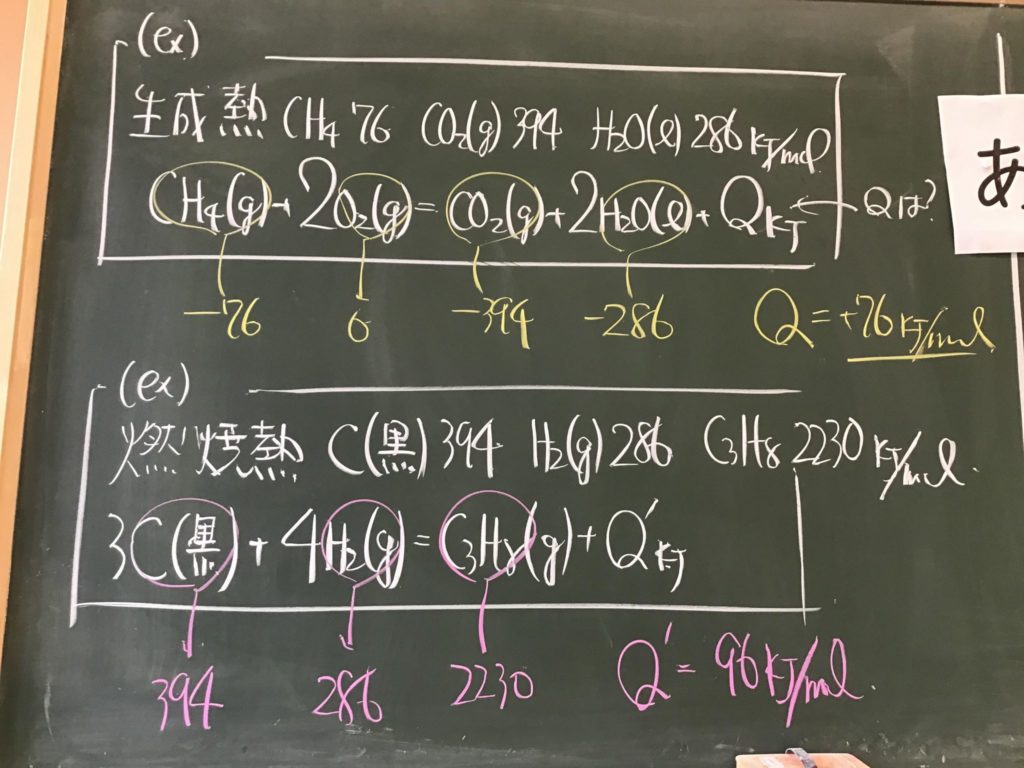 (ex)
生成熱 CH4 76 CO2(g) 394 H2O(l) 286 kJ/mol
CH4(g) + 2O2(g) = CO2(g) + 2H2O(l) + QkJ ← Qは?
-76 0 -394 -286 Q = +76 kJ/mol
(ex)
燃焼熱 C(黒) 394 H2(g) 286 C3H8 2230 kJ/mol
3C(黒) + 4H2(g) = C3H8(g) + Q'kJ
394 286 2230 Q' = 96 kJ/mol
あ